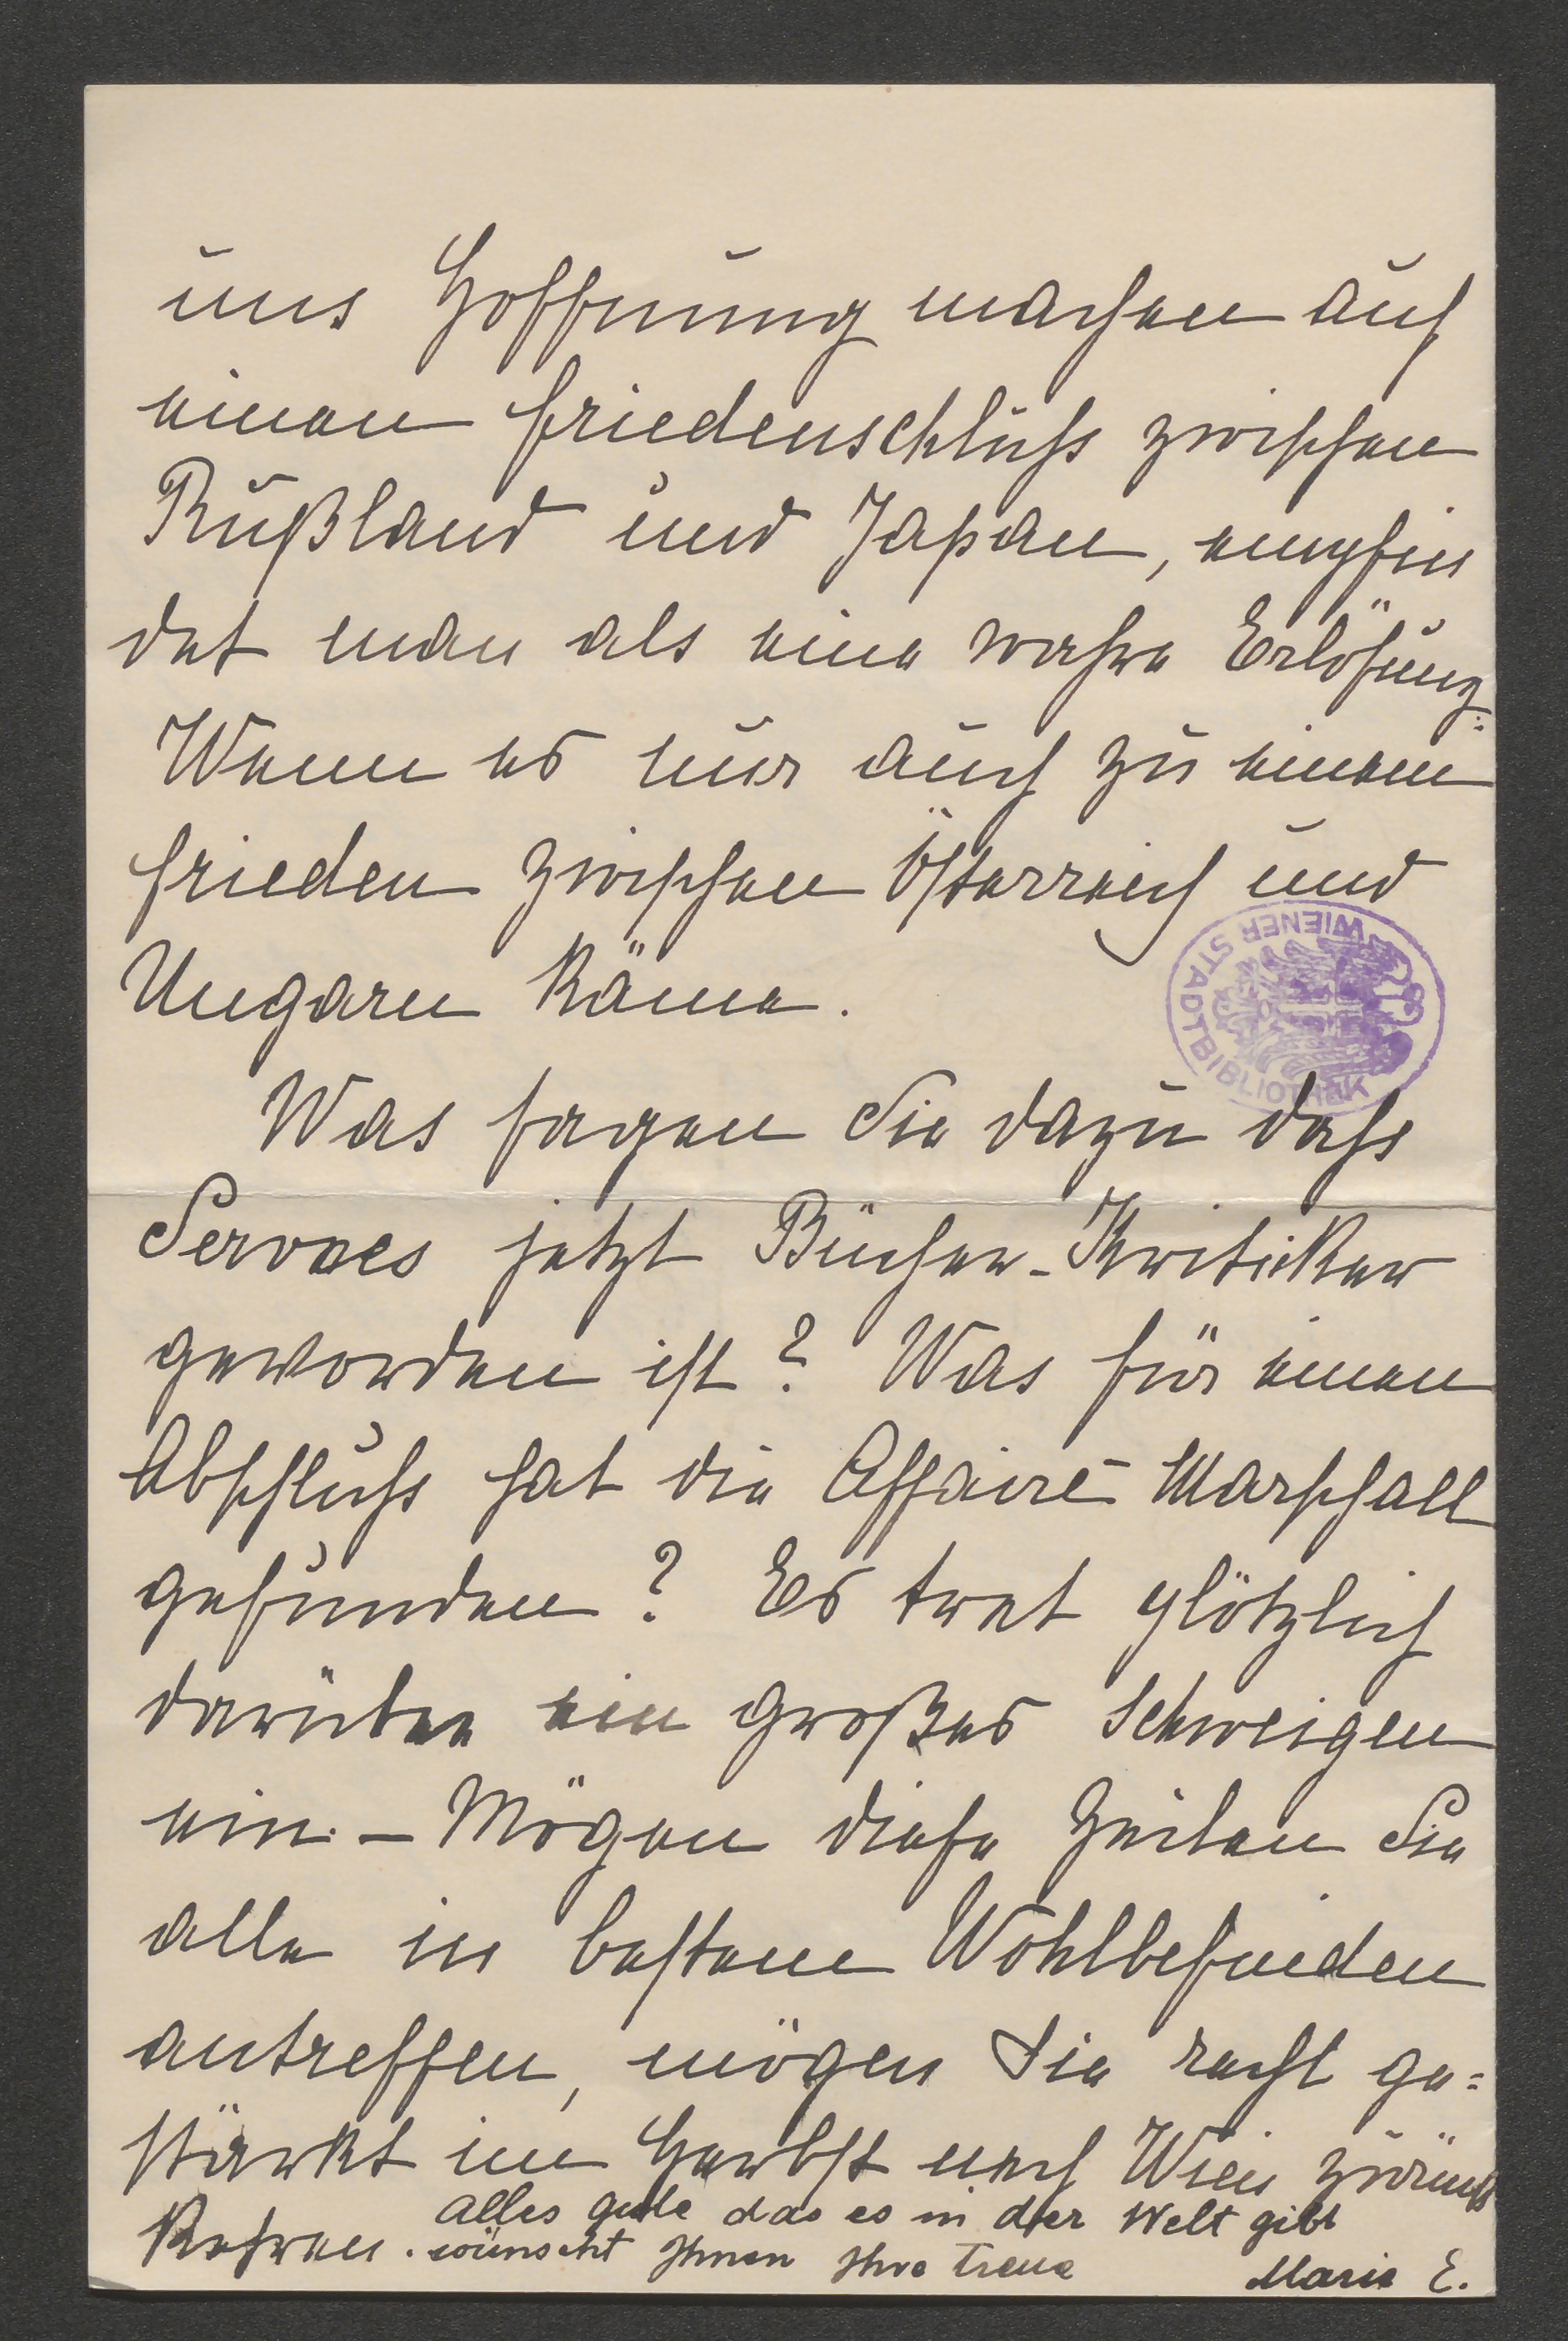 uns Hoffnung machen auf
einen Friedenschluſs zwischen
Rußland und Japan, empfin
det man als eine wahre Erlösung.
Wenn es nur auch zu einem
Frieden zwischen Österreich und
Ungarn käme.
WIENER STADTBIBLIOTHEK
Was sagen Sie dazu daſs
Servaes jetzt Bücher-Kritiker
geworden ist? Was für einen
Abschluſs hat die Affaire-Marschall
gefunden? Es trat plötzlich
darüber ein großes Schweigen
ein. – Mögen diese Zeilen Sie
alle in bestem Wohlbefinden
antreffen, mögen Sie recht ge=
stärkt im Herbst nach Wien zurück
kehren. Alles gute das es in der Welt gibt
wünscht Ihnen Ihre treue Marie E.